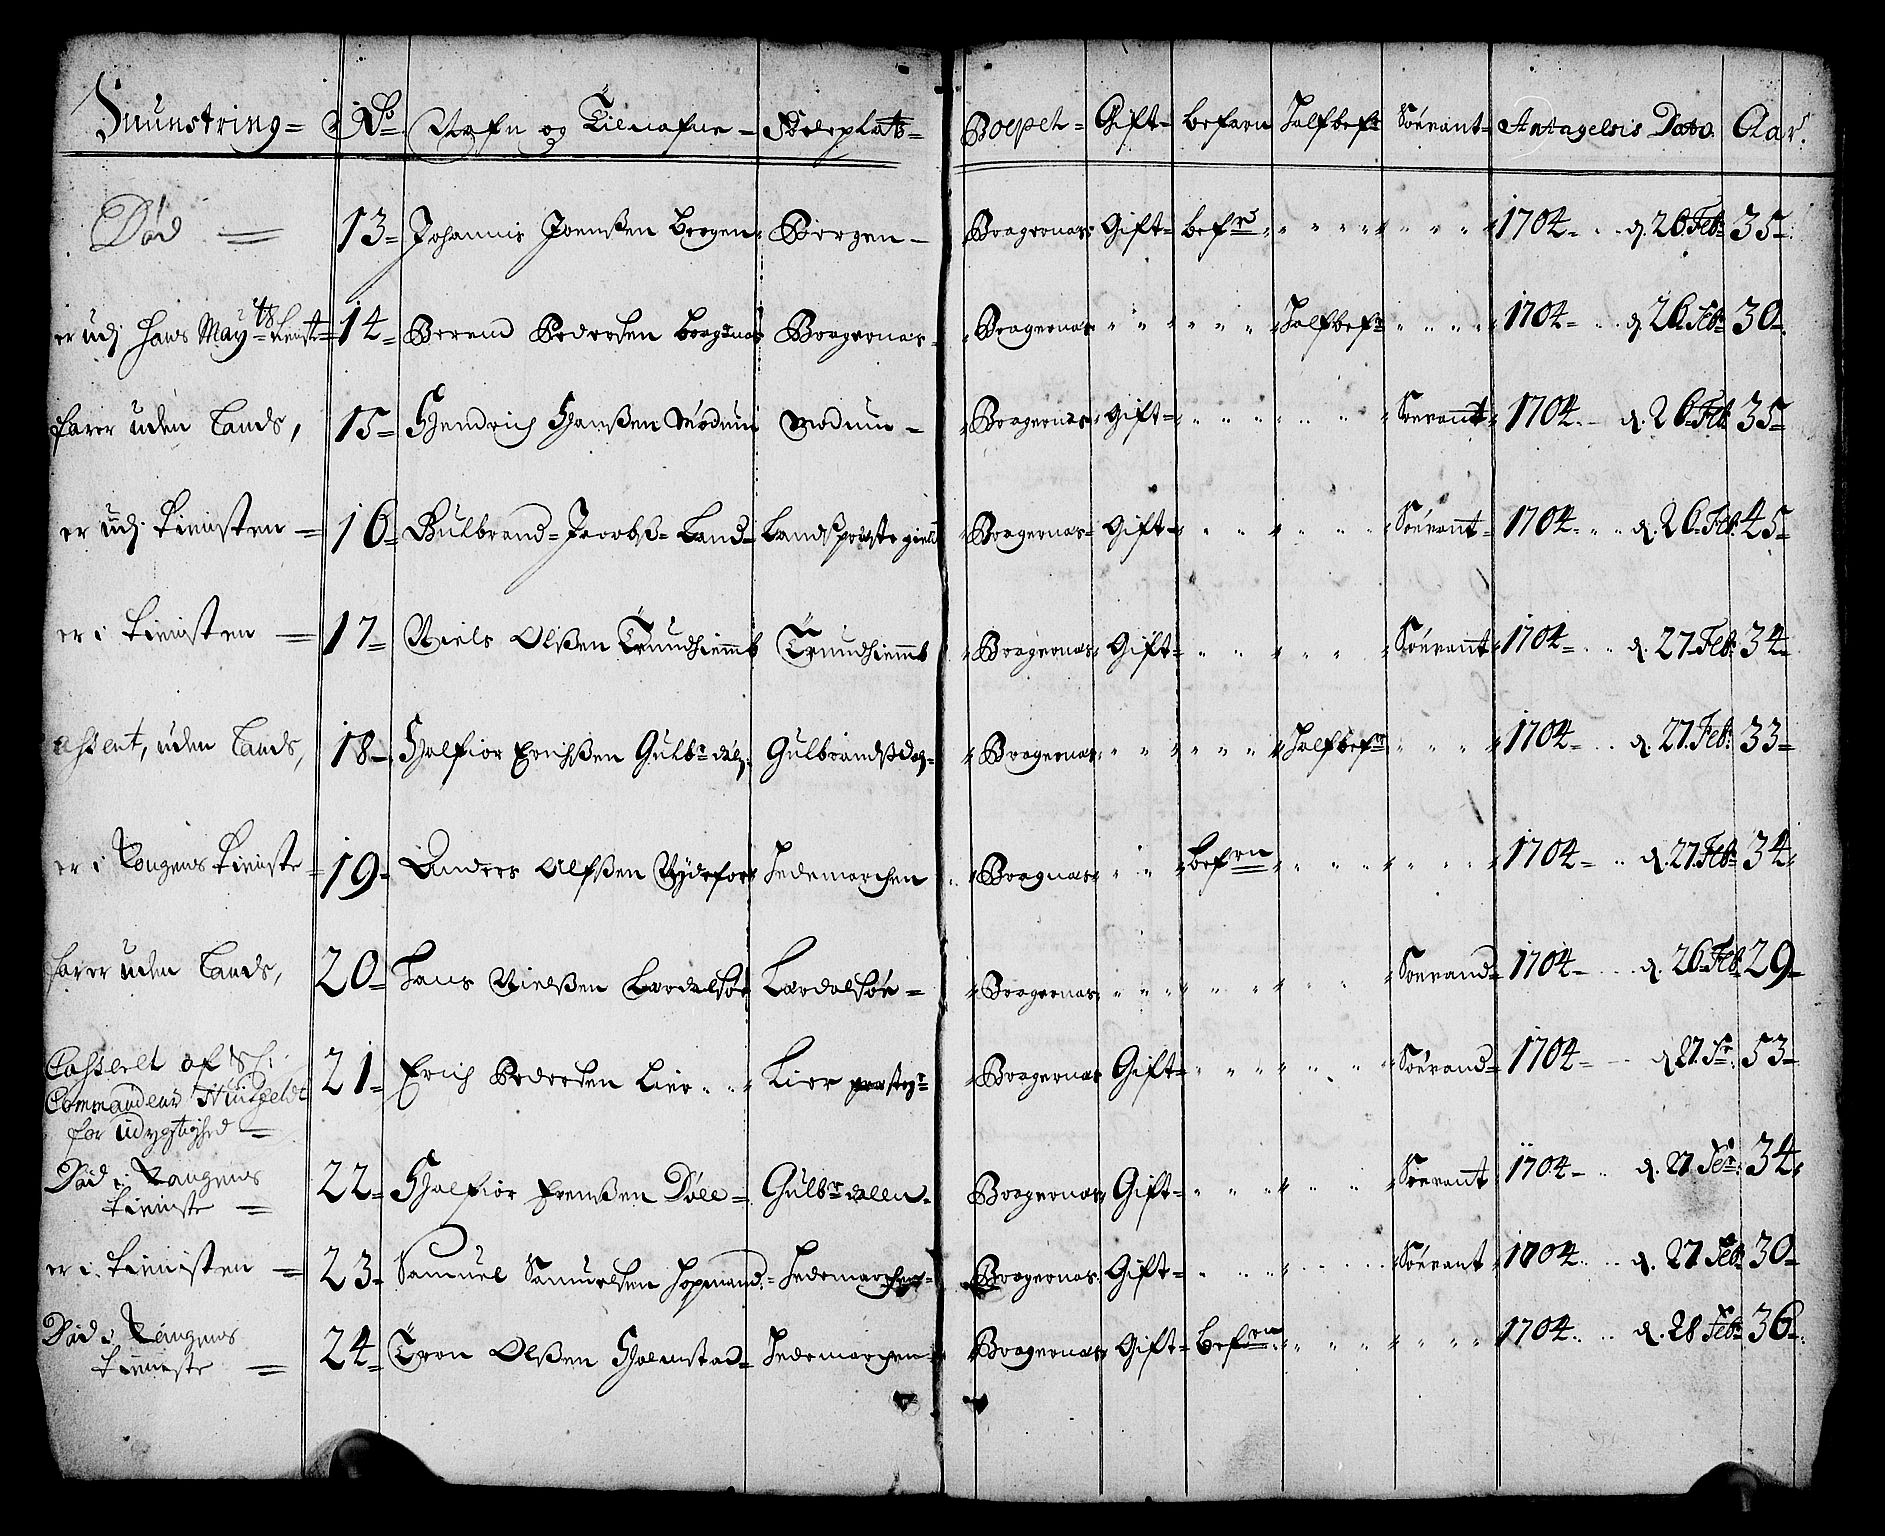 Muunstring= No Nafn og Tilnafne- Födeplats- Boepel- Gift- befarn Halfbef: Söevant- Antagelsis Dato. Aar.
Död = 13- Johannis Joenßen Bergen Bergen- Bragernæs Gift- bef: 1704- d. 26 Feb: 35-
er udj Hans May:ts tienste 14- Berend Pedersen Bragenæs Bragernæs- Bragernæs Halfbef: 1704- d. 26 Feb: 30-
farer uden Lands, 15- Hendrich Hanßen Modum Modum- Bragernæs Gift- Söevant 1704- d. 26 Feb 35-
er udj tienisten- 16- Gulbrand Jacobß- Land- Landß præstegield Bragernæs- Gift- Söevant- 1704- d. 26 Feb. 45-
er i tienisten = 17- Niels Olßen Trundhiemb Trundhiemb Bragernæs Gift- Söevant 1704- d. 27 Feb: 34-
Absent, uden Lands, 18- Halfvor Erichßen Gulb: dal. Gulbrandßdal- Bragernæs Halfbef: 1704- d. 27 Feb: 33-
er i Kongens tieniste 19- Anders Olfßen Hedemarchen Bragnæs befrn 1704- d. 27 Feb: 34-
farer uden Lands, 20- Hans Nielßen Lærdalsöe Lærdalsöe- Bragernæs Söevand- 1704- d. 26 Feb 29-
Casseret af Sch: Commandeur Hvidtfeldt for udygtighed = 21- Erich Pedersen Lier Lier præsteg: Bragernæs Gift- Söevand- 1704- d. 27 Fr: 53-
Död i Kongens tieniste = 22- Halfvor Frenßen Döll- Gulb: dallen- Bragernæs Gift- Söevant 1704- d. 27 Fer: 34-
er i tienisten = 23- Samuel Samuelsen Hopmand. Hedemarchen- Bragernæs Gift- Söevant 1704. d. 27 Feb 30-
Död i Kongens tieniste = 24- Tron Olßen Holmstad- Hedemarchen Bragernæs Gift- Befrn 1704. d. 28 Feb: 36-